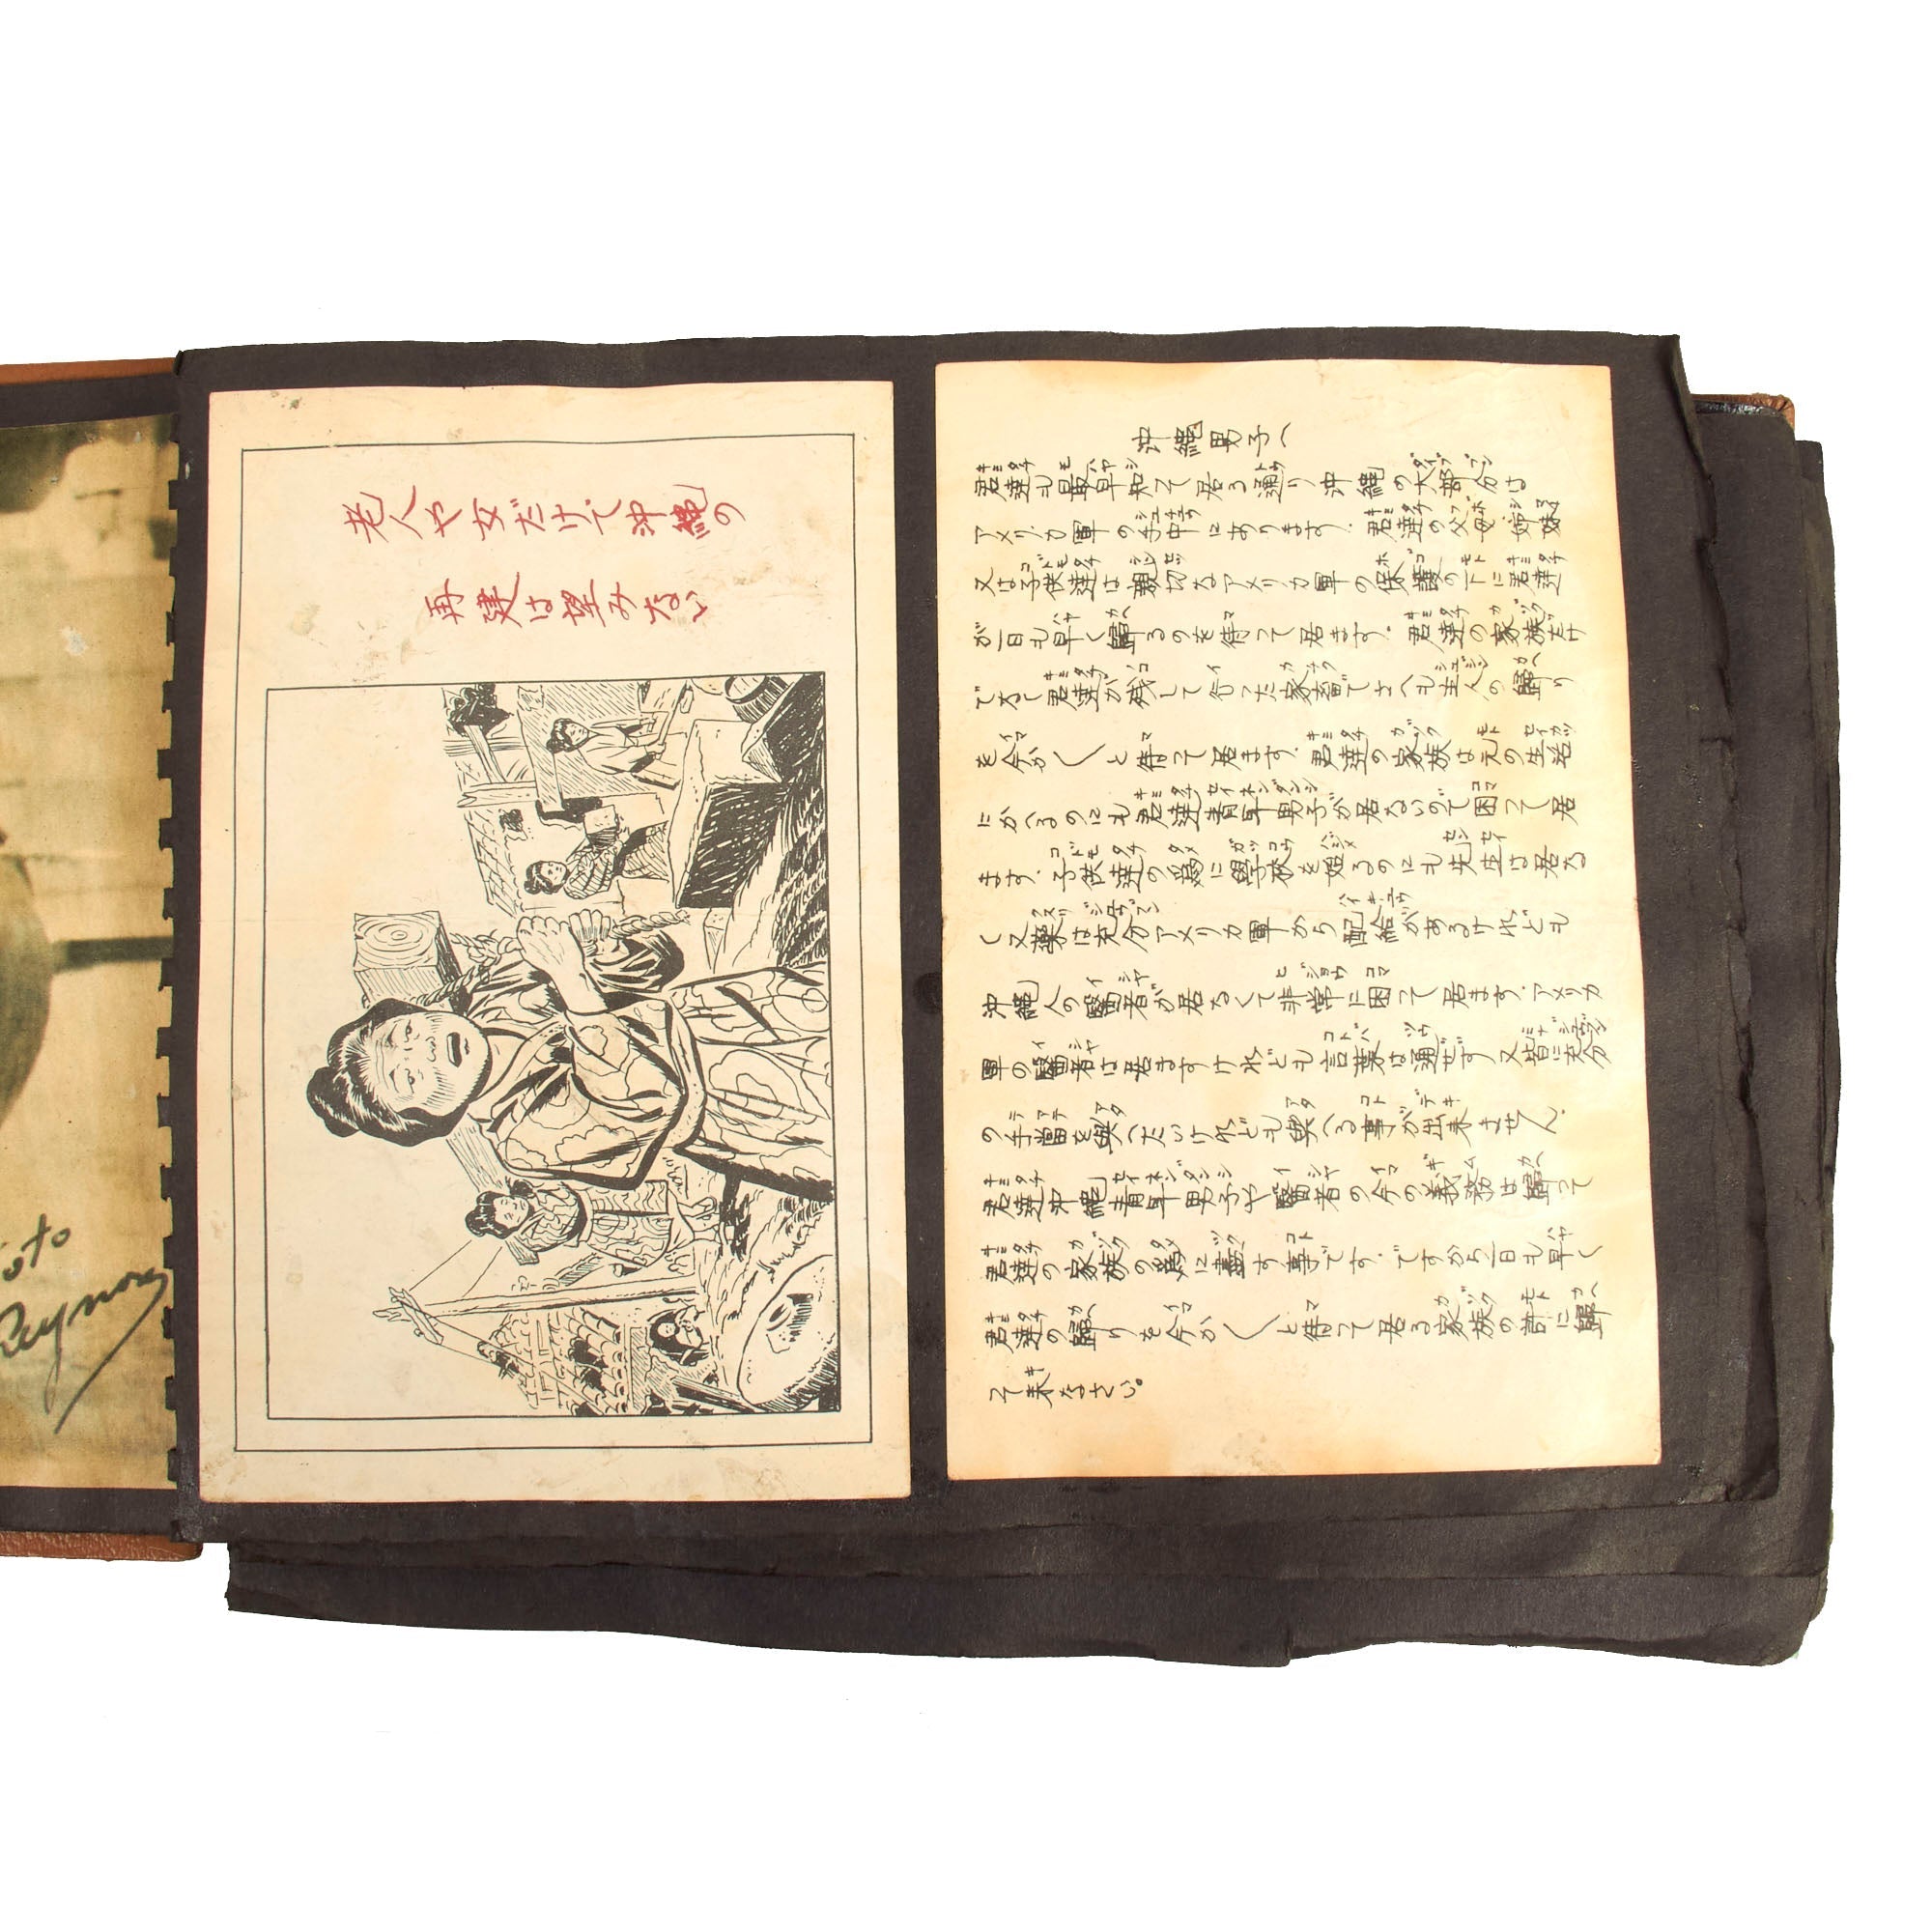 oto
Raymor
老人や女だけで沖縄の
再建は望みない
沖縄男子へ
君達も最早知って居る通り沖縄の大部分は
アメリカ軍の手中にあります．君達の父母姉妹
又は子供達は親切なアメリカ軍の保護の下に君達
が一日も早く歸るのを待って居ます．君達の家族だけ
でなく君達が残して行った家畜でさへも主人の歸り
を今か〱と待って居ます．君達の家族は元の生活
にかへるのにも君達青年男子が居ないので困って居
ます．子供達の為に學校を始るのにも先生は居な
く又藥は充分アメリカ軍から配給があるけれども
沖縄人の醫者が居なくて非常に困って居ます．アメリカ
軍の醫者は居ますけれども言葉は通ぜず又皆に充分
の手當を與へたいけれども與へる事が出来ません．
君達沖縄青年男子や醫者の今の義務は歸って
君達の家族の為に盡す事です．ですから一日も早く
君達の歸りを今か〱と待って居る家族の許に歸
って来なさい。